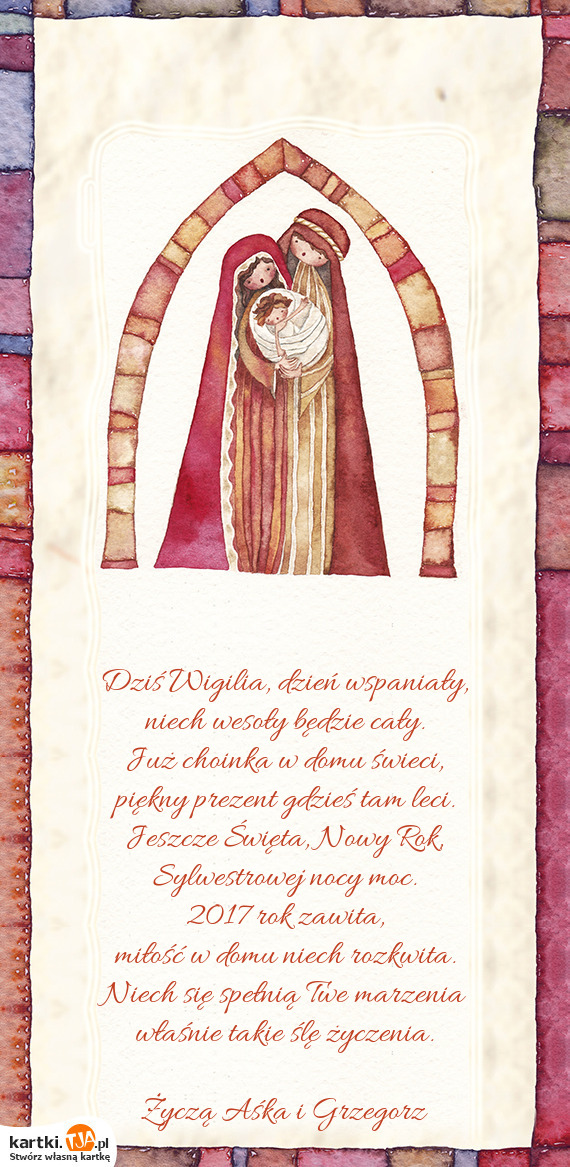 Dziś Wigilia, dzień wspaniały,
niech wesoły będzie cały.
Już choinka w domu świeci,
piękny prezent gdzieś tam leci.
Jeszcze Święta, Nowy Rok,
Sylwestrowej nocy moc.
2017 rok zawita,
miłość w domu niech rozkwita.
Niech się spełnią Twe marzenia
właśnie takie ślę życzenia.
Życzą Aśka i Grzegorz
kartki.TJA.pl
Stwórz własną kartkę